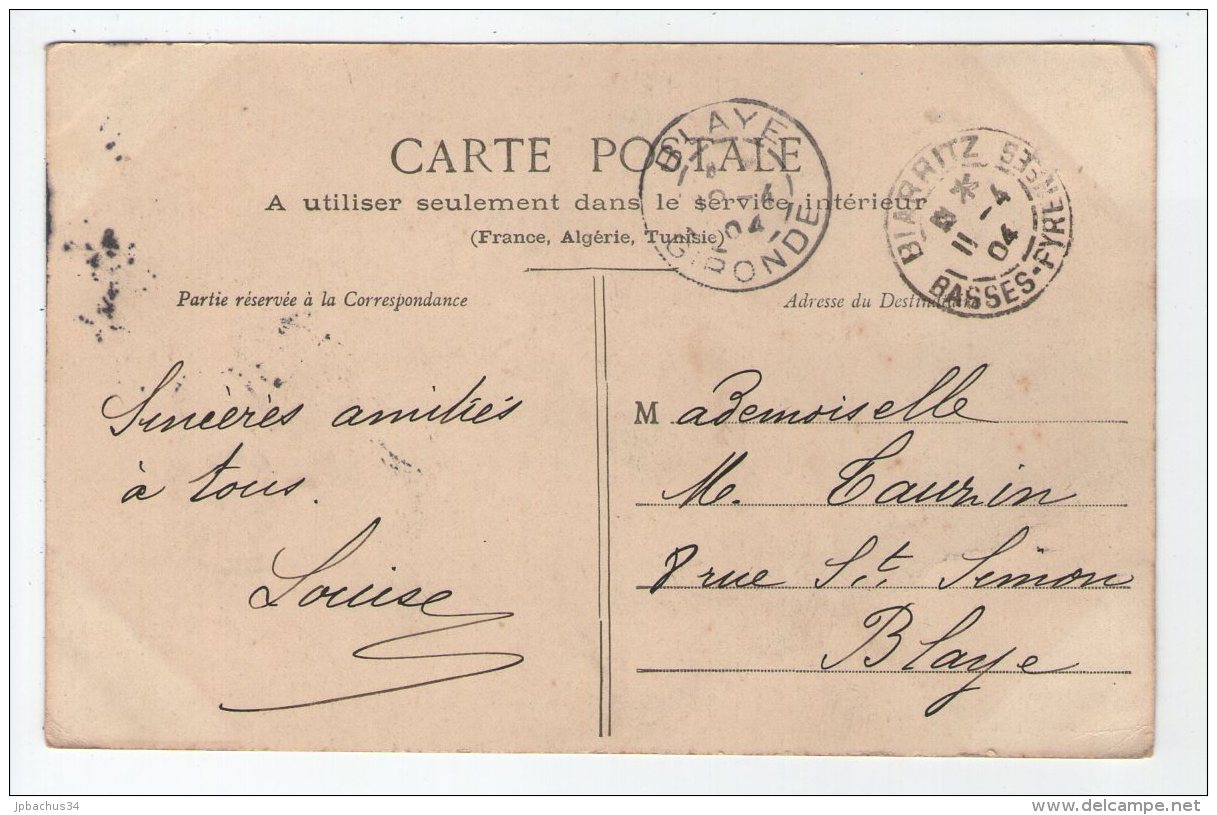 CARTE POSTALE
A utiliser seulement dans le service intérieur
(France, Algérie, Tunisie)
BLAYE
04
GIRONDE
BIARRITZ
11 - 4
04
BASSES-PYRENEES
Partie réservée à la Correspondance
Sincères amitiés
à tous.
Louise
Adresse du Destinataire
Mademoiselle
M. Tauzin
8 rue St. Simon
Blaye
jpbachus34
www.delcampe.net